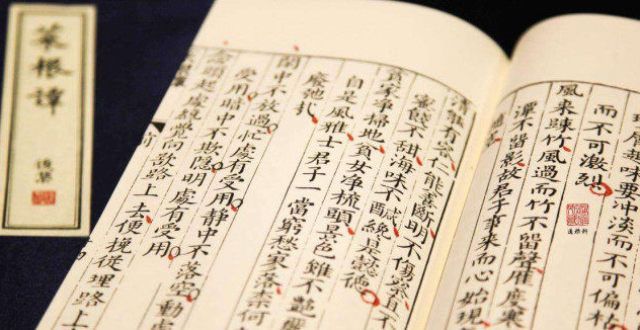 菜根譚
味要冲淡而不可偏枯
而不可激烈
風來疎竹風過而竹不留聲雁度寒
潭不留影故君子事來而心始現
清能有容仁能善斷明不傷察
蜜餞不甜海味不鹹纔是懿德
貧家淨掃地貧女淨梳頭景色雖不艷
自是風雅士君子一當窮愁寥落奈何
廢弛哉
閒中不放過忙處有受用靜中不落空動處
受用暗中不欺隱明處有受用
念頭起處纔覺向欲路上去便挽從理路上